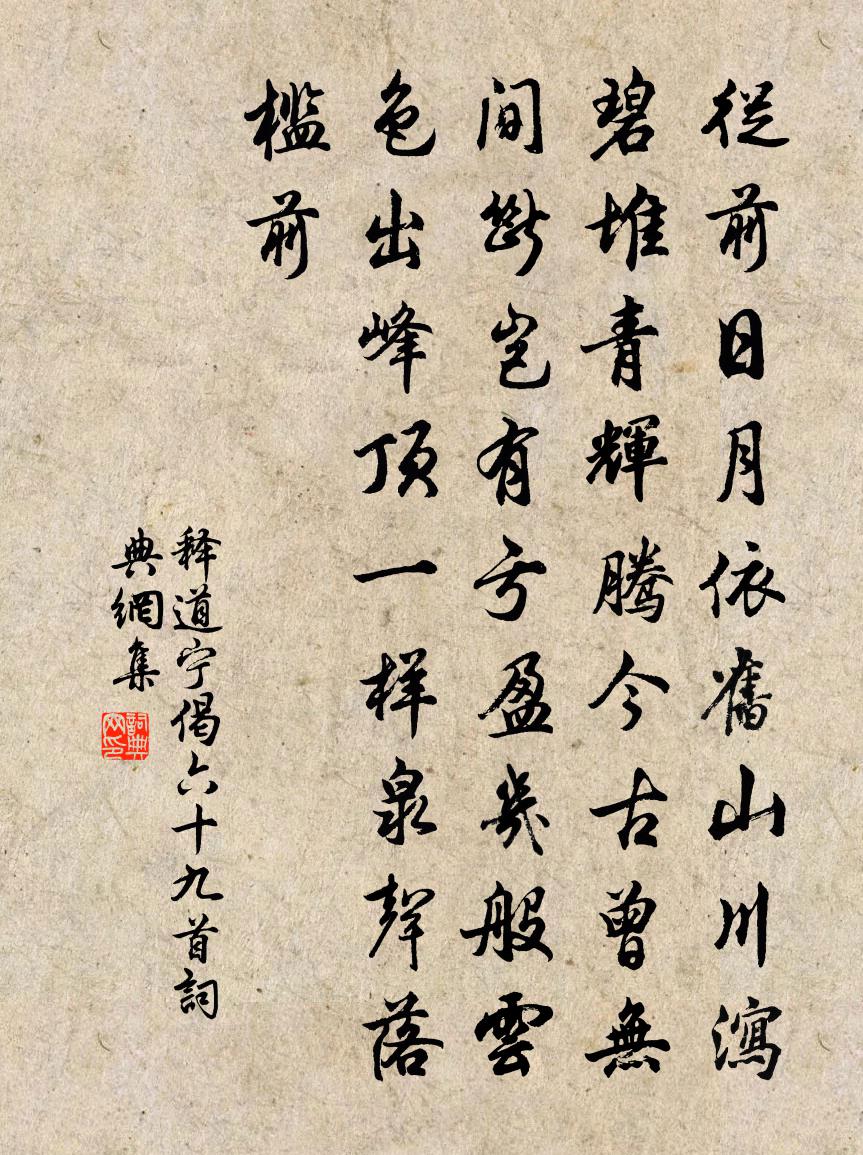 從前日月依舊山川瀉
碧堆青輝騰今古曾無
間斷豈有亏盈幾般雲
色出峰頂一样泉聲落
檻前
释道宁偈六十九首詞
典網集
詞典網印